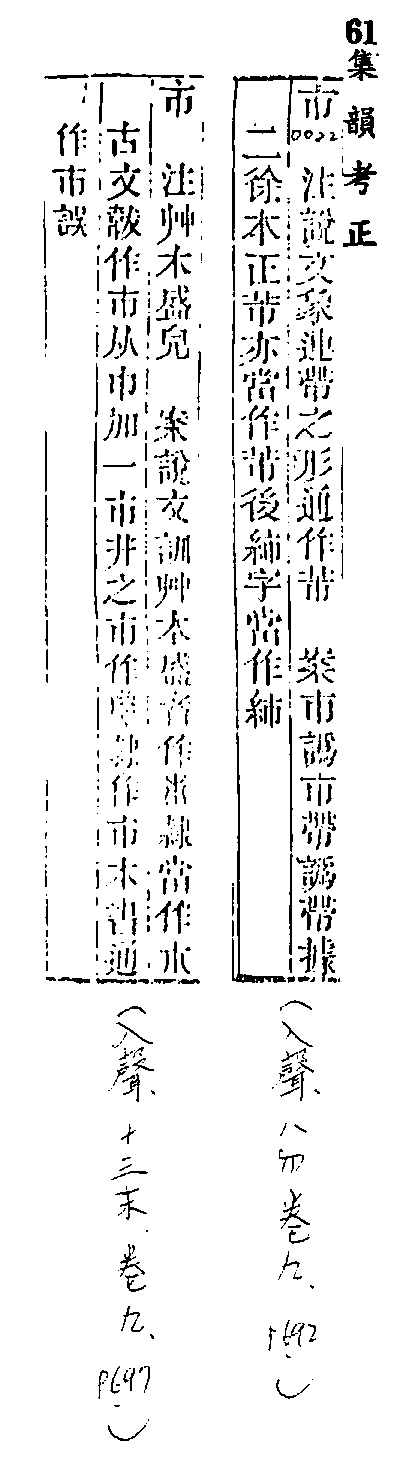 61集韻考正
市 注說文象連帶之形通作芾 案市譌巿帶譌帶據
0022
二徐本正芾亦當作芾後紼字當作紼
(入聲、八勿卷九、P692)
市 注艸木盛皃 案說文訓艸木盛者作 隸當作巿
古文韍作市从巾加一市非之市作 隸作市木出通
作市誤
(入聲、十三末、卷九、P697)